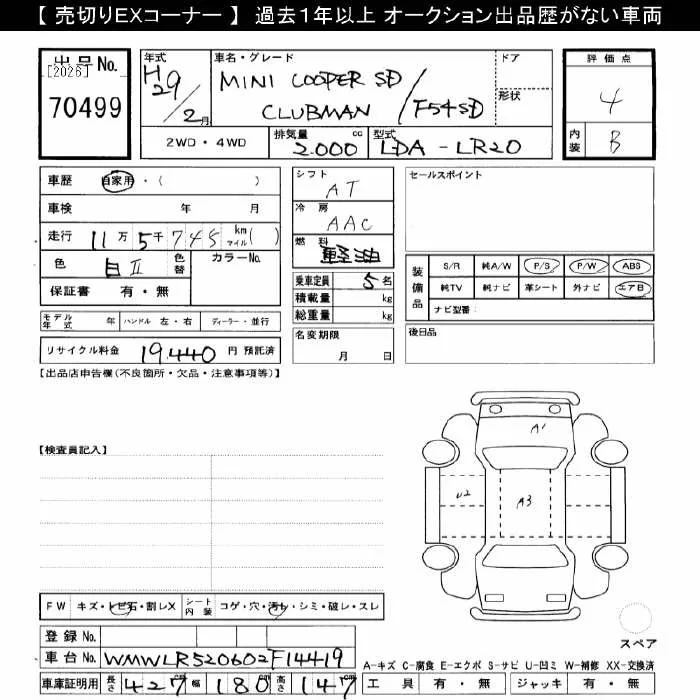 【 売切りEXコーナー 】 過去１年以上 オークション出品歴がない車両
出品 No.
[2026]
70499
年式
H29/2月
車名・グレード
MINI COOPER SD/
CLUBMAN /F54SD
ドア
形状
評価点
4
内装
B
2WD・4WD
排気量
2.000 cc
型式
LDA - LR20
車歴 自家用・( )
車検 年 月
走行 11万5千745 km マイル( )
色 白Ⅱ 色替 カラーNo.
保証書 有・無
シフト
AT
冷房
AAC
燃料
軽油
乗車定員 5名
積載量 kg
総重量 kg
セールスポイント
装備品
S/R 純A/W P/S P/W ABS
純TV 純ナビ 革シート 外ナビ エアB
ナビ型番:
モデル年式 年 ハンドル 左・右 ディーラー・並行
リサイクル料金 19,440 円 預託済
名変期限
月 日
後日品
【出品店申告欄(不良箇所・欠品・注意事項等)】
【検査員記入】
A1
U2
A3
スペア
FW キズ・トビ石・割レX シート内装 コゲ・穴・汚レ・シミ・破レ・スレ
登録 No.
車台 No. WMWLR520602F14419
車庫証明用 長さ 427cm 幅 180cm 高さ 147cm
A-キズ C-腐食 E-エクボ S-サビ U-凹ミ W-補修 XX-交換済
工具 有・無 ジャッキ 有・無